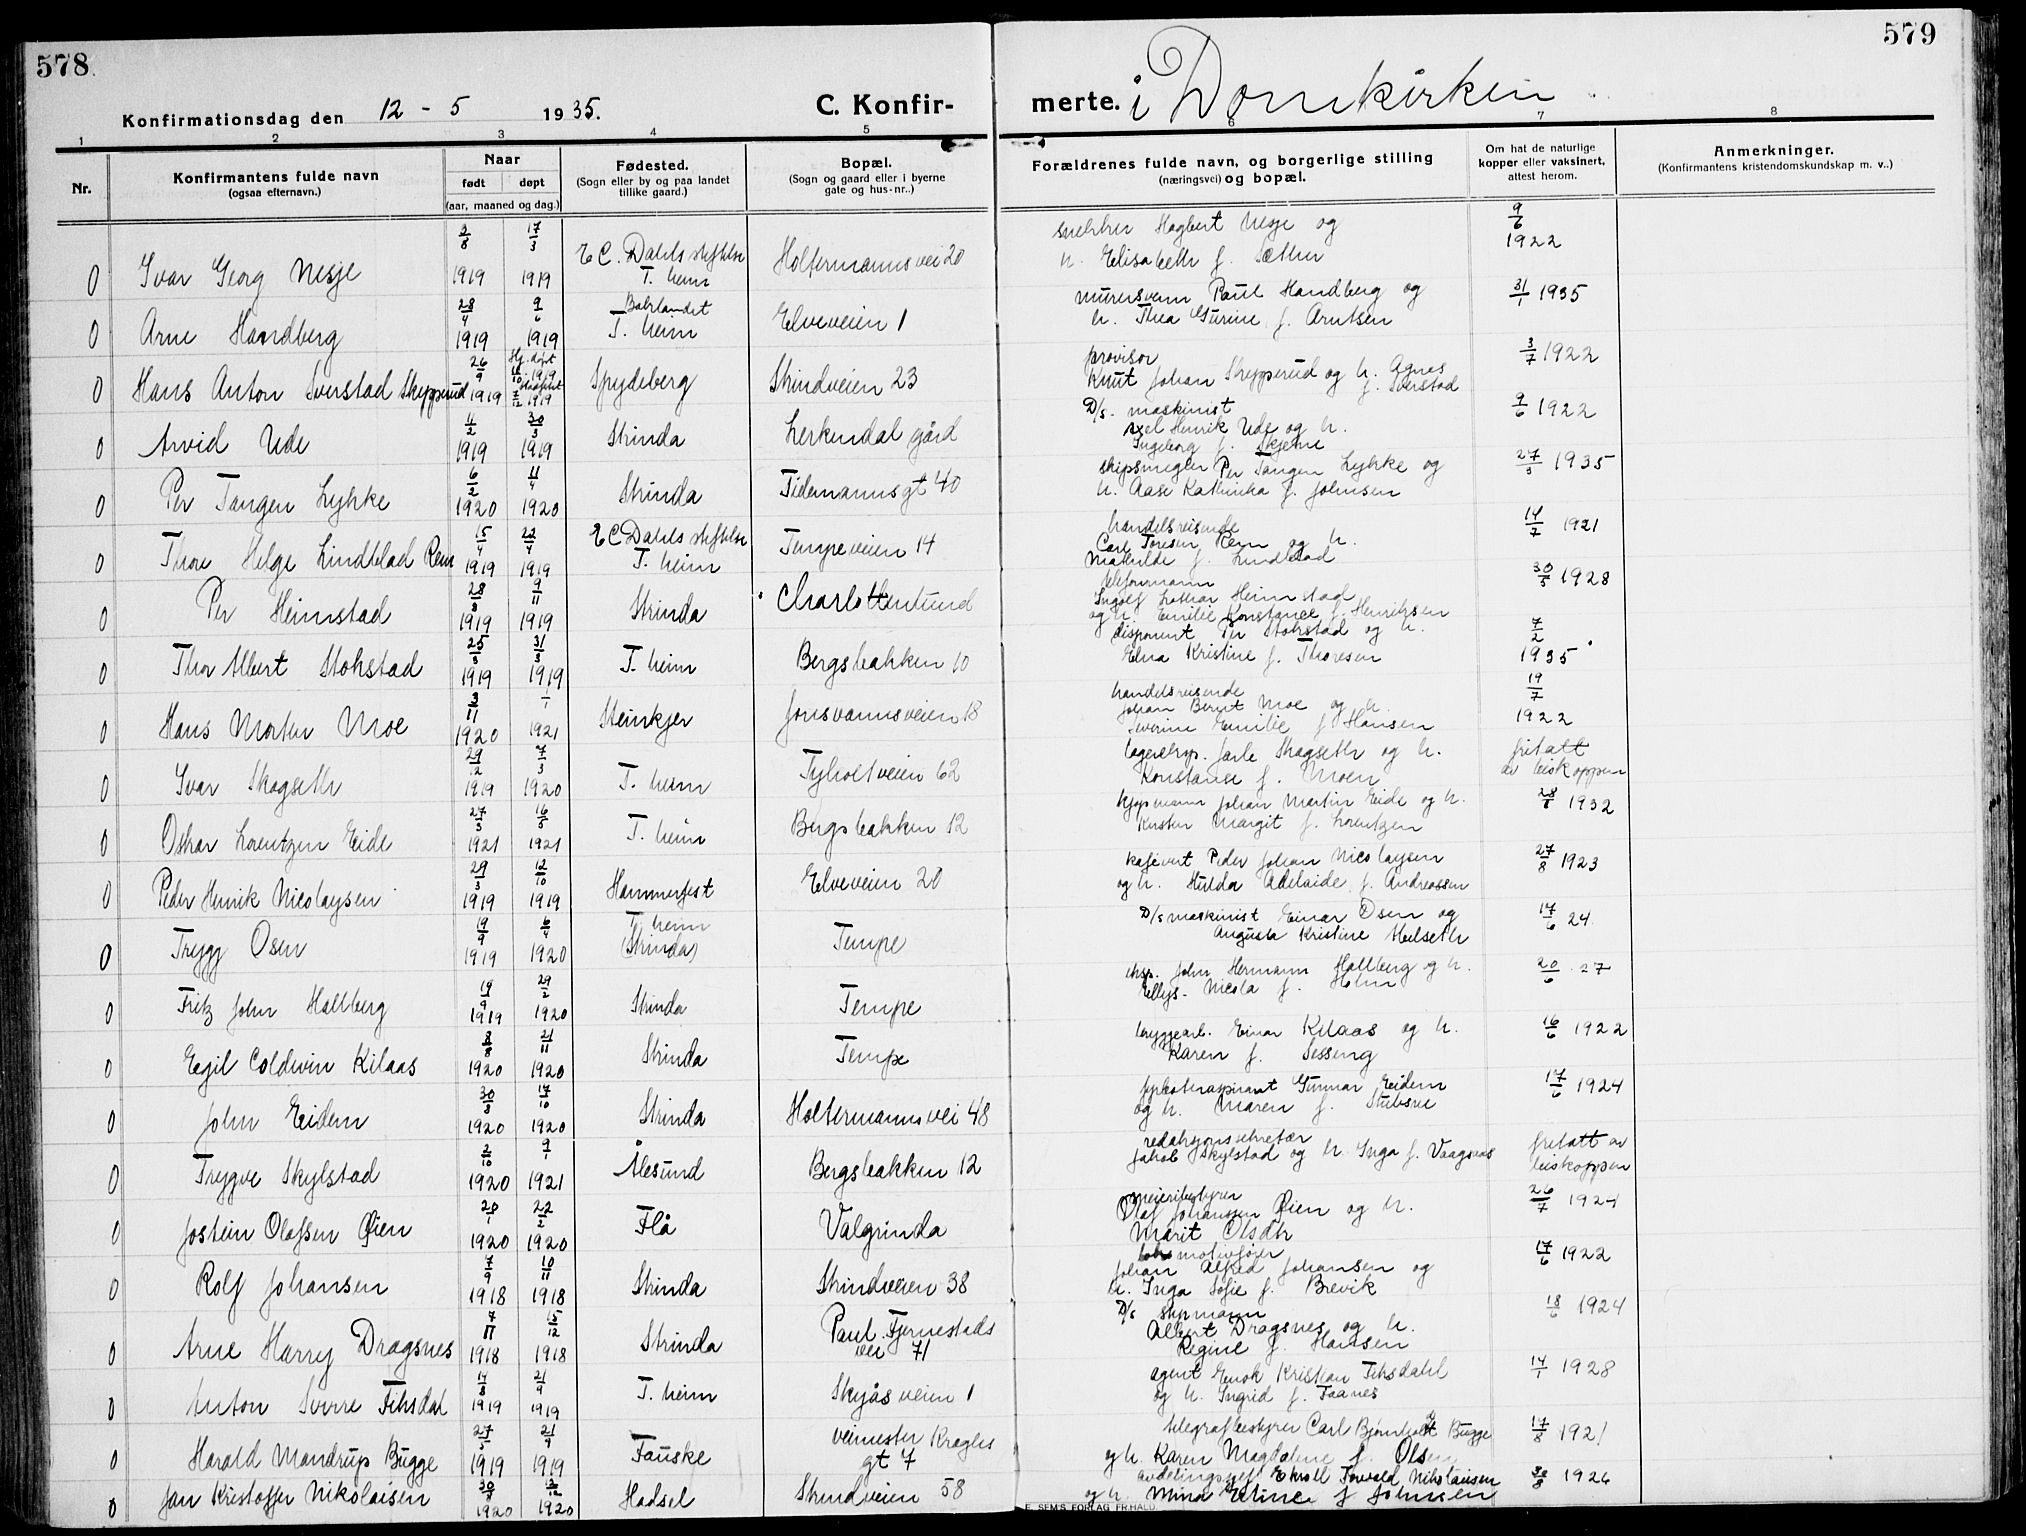 578
579
Konfirmationsdag den 12 - 5 1935.
C. Konfir-
merte. i Domkirken
1 2 3 4 5 6 7 8
Nr.
Konfirmantens fulde navn
(ogsaa efternavn.)
Naar
født døpt
(aar, maaned og dag.)
Fødested.
(Sogn eller by og paa landet
tillike gaard.)
Bopæl.
(Sogn og gaard eller i byerne
gate og hus-nr..)
Forældrenes fulde navn, og borgerlige stilling
(næringsvei) og bopæl.
Om hat de naturlige
kopper eller vaksinert,
attest herom.
Anmerkninger.
(Konfirmantens kristendomskundskap m. v..)
0 Ivar Georg Nesje 3/8 1919 17/3 1919 E C. Dahls stiftelse T. heim Holtermannsvei 20 snekker Hagbert Nesje og h. Elisabeth f. Sæther 9/6 1922
0 Arne Handberg 28/4 1919 9/6 1919 Baklandet T. heim Elveveien 1 murersvenn Paul Handberg og h. Thea Gurine f. Arntsen 31/1 1935
0 Hans Anton Sverstad Skipperud 26/9 1919 Hj. døpt 1919 1919 Spydeberg Strindveien 23 provisor Knut Johan Skipperud og h. Agnes f. Sverstad 3/7 1922
0 Arvid Ude 4/2 1919 30/3 1919 Strinda Lerkendal gård D/s. maskinist Axel Henrik Ude og h. Ingeborg f. Skjerve 9/6 1922
0 Per Tangen Lykke 6/2 1920 11/4 1920 Strinda Tidemannsgt 40 skipsmegler Per Tangen Lykke og h. Aase Kathinka f. Johnsen 27/5 1935
0 Thore Helge Lindblad Rem 15/4 1919 22/4 1919 E C Dahls stiftelse T. heim Tempeveien 14 handelsreisende Carl Toresen Rem og h. Mathilde f. Lindblad 14/7 1921
0 Per Heimstad 28/8 1919 9/11 1919 Strinda Charlottenlund telefonmann Ingolf Lothar Heimstad og h. Emilie Konstance f. Henriksen 30/5 1928
0 Thor Albert Stokstad 25/3 1919 31/3 1919 T. heim Bergsbakken 10 disponent Per Stokstad og h. Edna Kristine f. Thoresen 7/2 1935
0 Hans Morten Moe 3/11 1920 1/1 1921 Steinkjer Jonsvannsveien 18 handelsreisende Johan Bernt Moe og h. Severine Emilie f. Hansen 19/7 1922
0 Ivar Skogseth 29/12 1919 7/3 1920 T. heim Tyholtveien 62 lagereksp. Jarle Skogseth og h. Konstanse f. Moen fritatt av biskoppen
0 Oskar Lorentzen Eide 27/3 1921 16/5 1921 T. heim Bergsbakken 12 kjøpmann Johan Martin Eide og h. Kirsten Margit f. Lorentzen 28/6 1932
0 Peder Henrik Nicolaysen 29/3 1919 12/10 1919 Hammerfest Elveveien 20 kafévert Peder Johan Nicolaysen og h. Hulda Adelaide f. Andreassen 27/8 1923
0 Trygg Osen 19/9 1919 6/4 1920 T. heim (Strinda) Tempe D/s maskinist Einar Osen og Augusta Kristine Melseth 17/6 24.
0 Fritz John Hallberg 19/9 1919 29/2 1920 Strinda Tempe eksp. John Hermann Hallberg og h. Ellys-Nicola f. Holm 20/6 27
0 Egil Coldevin Kilaas 8/8 1920 21/11 1920 Strinda Tempe bryggearb. Einar Kilaas og h. Karen f. Sesseng 16/6 1922
0 John Eidem 30/8 1920 17/10 1920 Strinda Holtermannsvei 48 fysioterapiant Gunnar Eidem og h. Maren f. Stubsve 17/6 1924
0 Trygve Skylstad 2/10 1920 9/1 1921 Ålesund Bergsbakken 12 redaksjonssekretær Jakob Skylstad og h. Inga f. Vaagsnes fritatt av biskoppen
0 Jostein Olafsen Øien 20/1 1920 22/2 1920 Flå Valgrinda meieribestyrer Olaf Johanssen Øien og h. Marit Olsdtr 26/7 1924
0 Rolf Johansen 7/9 1918 10/11 1918 Strinda Strindveien 38 lokomotivfører Johan Alfred Johansen og h. Inga Sofie f. Brevik 17/6 1922
0 Arne Harry Dragsnes 7/11 1918 15/12 1918 Strinda Paul Fjermestads vei 71 D/s styrmann Albert Dragsnes og h. Regine f. Hansen 18/6 1924
0 Anton Sverre Fiksdal 14/8 1919 21/9 1919 T. heim Skyåsveien 1 agent Enok Kristian Fiksdahl og h. Ingrid f. Faanes 14/1 1928
0 Harald Mandrup Bugge 27/5 1919 21/9 1919 Fauske veimester Kroglis gt 7 telegrafbestyrer Carl Bjørnholdt Bugge og h. Karen Magdalene f. Olsen 17/8 1921
0 Jan Kristoffer Nikolaisen 1920 1920 Hadsel Strindveien 58 avdelingssjef Ekroll Torvald Nikolaisen og h. Mina Eline f Johnsen 30/8 1926
E. SEM'S FORLAG FR.HALD